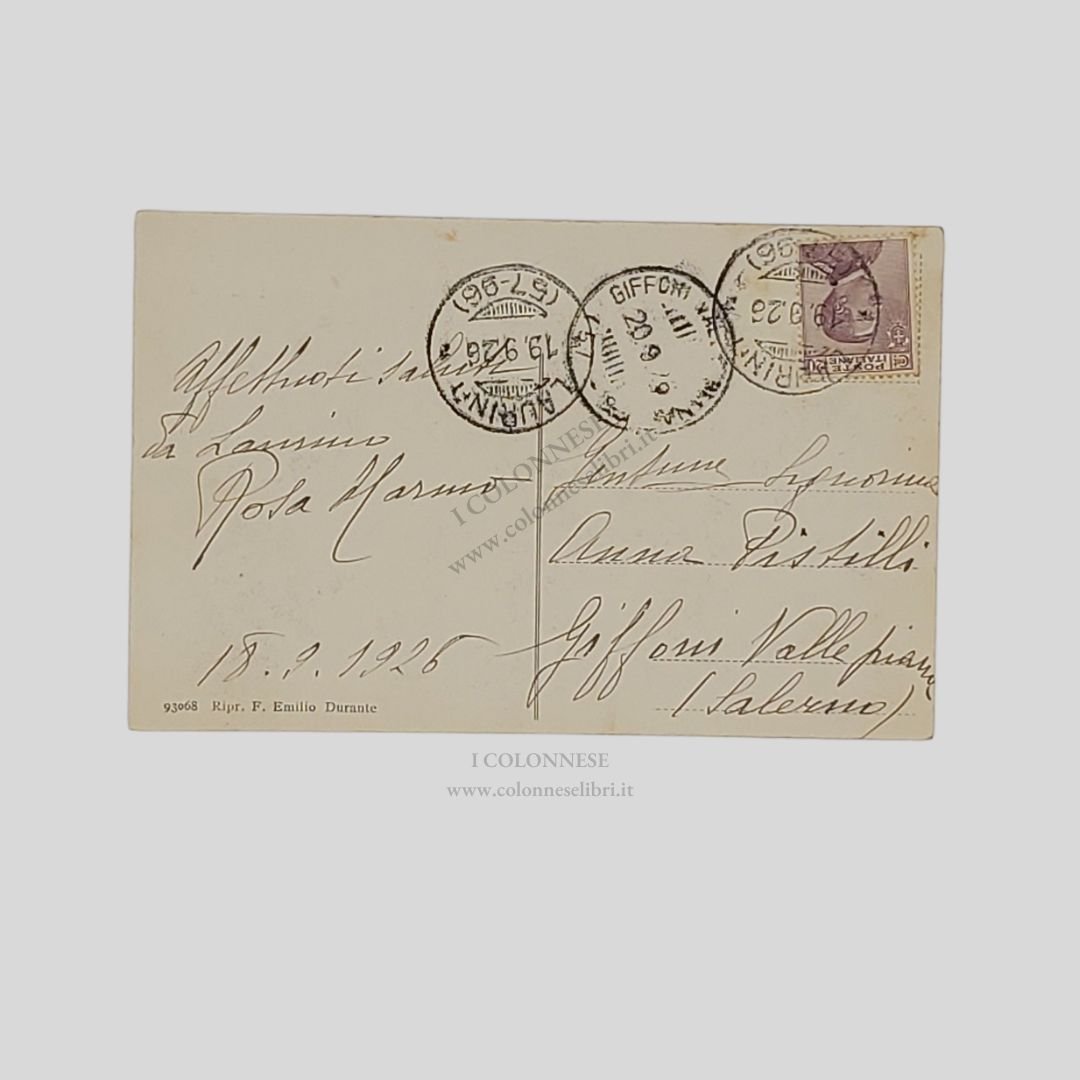 Affettuosi saluti
da Laurino
Rosa Marmo
18.9.1926
93068 Ripr. F. Emilio Durante
(57-96)
19.9.26
LAURINO
GIFFONI VALLE PIANA
20 9
96)
19.9.26
LAURINO
POSTE
ITALIANE
20
Signorina
Anna Pistilli
Giffoni Vallepiana
(Salerno)
I COLONNESE
www.colonneselibri.it
I COLONNESE
www.colonneselibri.it